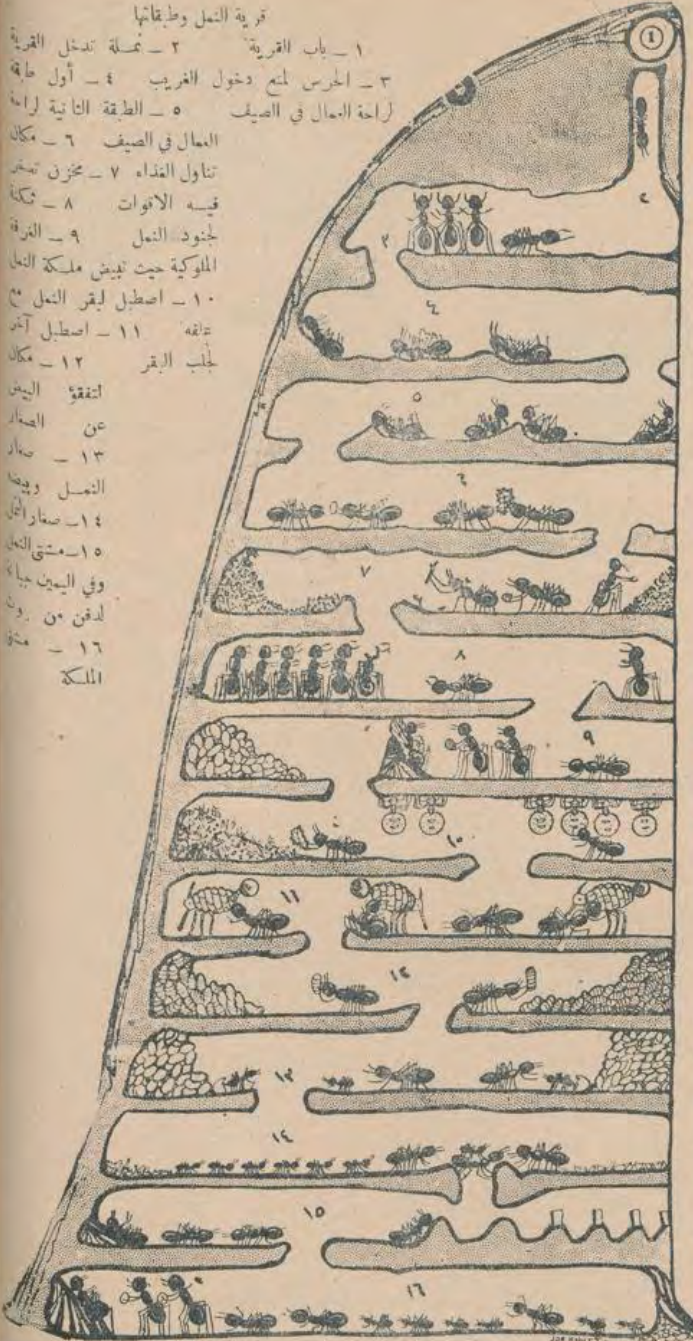 قرية النمل وطبقاتها
١ – باب القرية ٢ – نملة تدخل القرية
٣ – الحرس لمنع دخول الغريب ٤ – أول طبقة
لراحة العمال في الصيف ٥ – الطبقة الثانية لراحة
العمال في الصيف ٦ – مكان
تناول الغذاء ٧ – مخزن تدخر
فيه الاقوات ٨ – ثكنة
لجنود النمل ٩ – الغرفة
الملوكية حيث تبيض ملكة النمل
١٠ – اصطبل لبقر النمل مع
علفه ١١ – اصطبل آخر
لحلب البقر ١٢ – مكان
لتفقؤ البيض
عن الصغار
١٣ – صغار
النمل وبيضه
١٤ – صغار النمل
١٥ – مشتى النمل
وفي اليمين جبانة
لدفن من
١٦ – مشتى
الملكة
1
٢
٣
٤
٥
٦
٧
٨
٩
١٠
١١
١٢
١٣
١٤
١٥
١٦